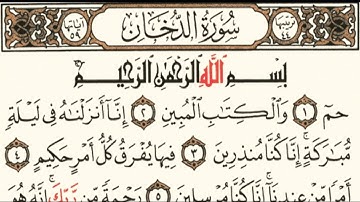 ترتيبها ٤٤ سُورَةُ الدُّخَانِ آياتها ٥٩
بِسْمِ اللَّهِ الرَّحْمَٰنِ الرَّحِيمِ
حمٓ ١ وَالْكِتَابِ الْمُبِينِ ٢ إِنَّا أَنزَلْنَاهُ فِي لَيْلَةٍ
مُّبَارَكَةٍ إِنَّا كُنَّا مُنذِرِينَ ٣ فِيهَا يُفْرَقُ كُلُّ أَمْرٍ حَكِيمٍ ٤
أَمْرًا مِّنْ عِندِنَا إِنَّا كُنَّا مُرْسِلِينَ ٥ رَحْمَةً مِّن رَّبِّكَ إِنَّهُ هُوَ